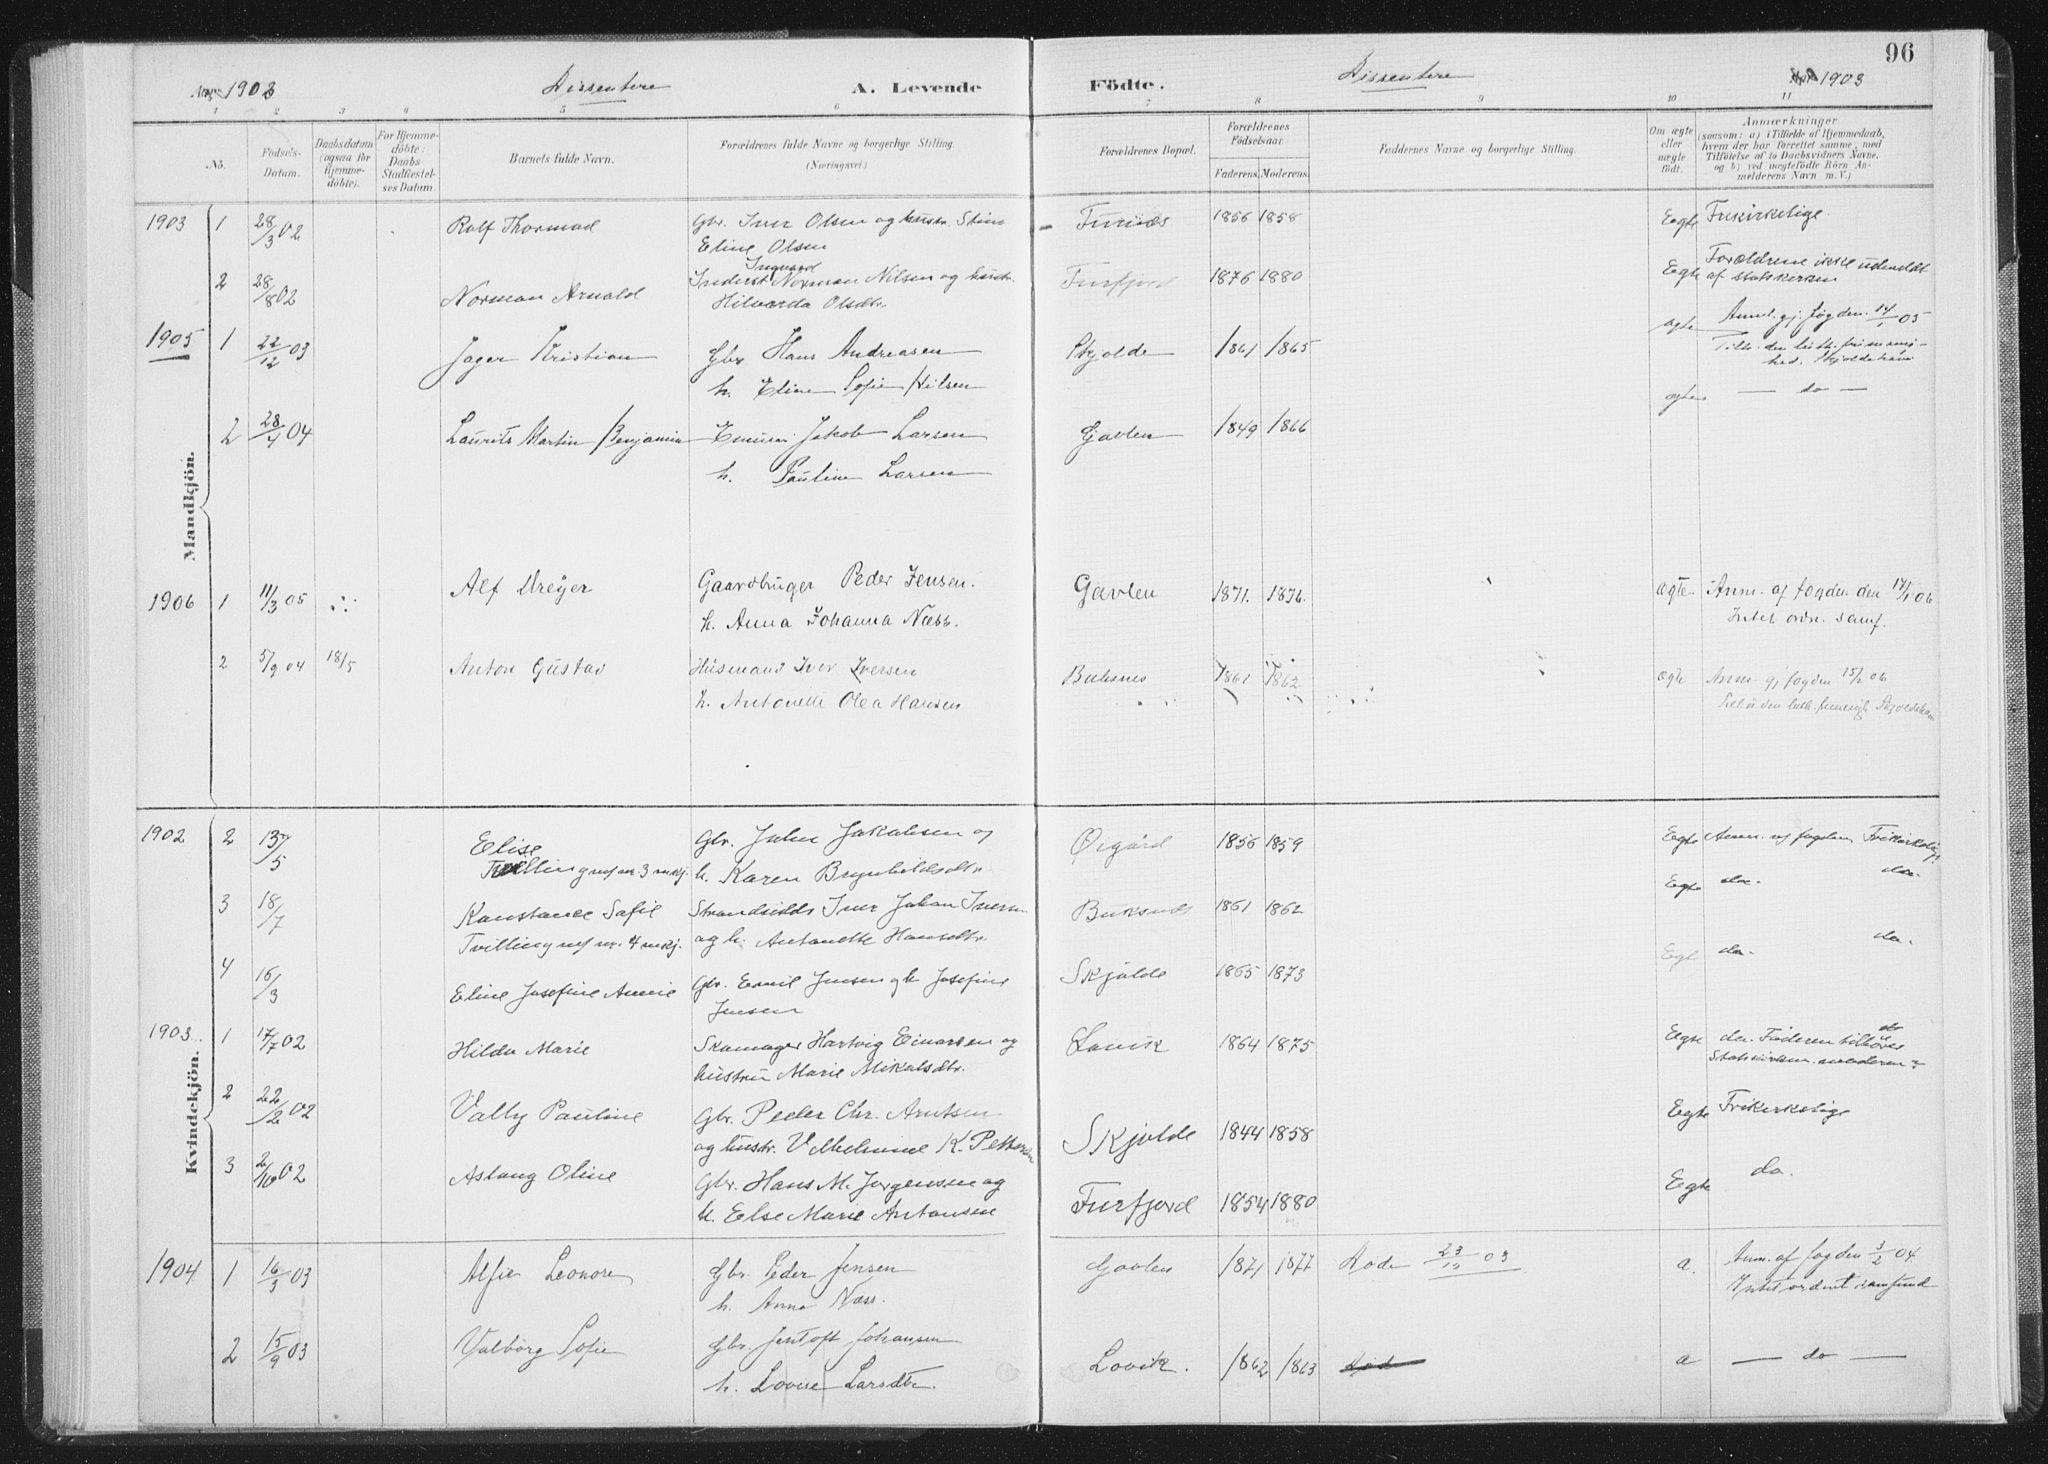 96
Aar 1903 Dissentere A. Levende Födte. Dissentere Aar 1903
1 2 3 4 5 6 7 8 9 10 11
No. Födsels-Datum. Daabsdatum (ogsaa for hjemmedöbte). For Hjemmedöbte: Daabs-Stadfæstelses Datum. Barnets fulde Navn. Forældrenes fulde Navne og borgerlige Stilling. (Næringsvei) Forældrenes Bopæl. Forældrenes Födselsaar. Faderens. Moderens. Faddernes Navne og borgerlige Stilling. Om ægte eller uægte födt. Anmærkninger (saasom: a) i Tilfælde af Hjemmedaab, hvem der har forrettet samme, med Tilföielse af to Daabsvidners Navne, og b) ved uægtefödte Börn Anmelderens Navn m. V.)
Mandkjön.
1903 1 28/3 02 Rolf Thormod Gbr. Iver Olsen og hustr. Stine Furnes 1856 1858 Egte Frikirkelige.
Eline Olsen
Ingvard
2 28/8 02 Norman Arnold Inderst Norman Nilsen og hustr. Furfjord 1876 1880 Egte Forældrene ikke udmeldt
Hilvarda Olsdtr. af statskirken
1905 1 22/12 03 Jager Kristian Gbr Hans Andreasen Skjolde 1861 1865 ægte Anm. gj. fogden 14/1 05
h. Eline Sofie Nilsen Tilh. den luth. frimenighed. Skjoldehavn
2 28/4 04 Laurits Martin Benjamin Jakob Larsen Gavlen 1849 1866 ægte — do —
h. Pauline Larsen
1906 1 11/3 05 Alf Dreyer Gaardbruger Peder Jensen. Gavlen 1871. 1876. ægte. Anm. af fogden den 17/1 06
h. Anna Johanna Næss. Intet ordn. samf.
2 5/9 04 18/5 Anton Gustav Husmand Iver Iversen Buksnes 1861 1862 ægte Anm. gj fogden 15/2 06
h. Antonette Olea Hansen Tilhö den luth. frimenigh. Skjoldehavn
Kvindekjön.
1902 2 13/5 Elise Gbr. Julius Jakobsen og Öigård 1856 1859 Egte Anm. v/ fogden Frikirkelige
Tvilling m/ nr. 3 mkj. h. Karen Brynhildsdtr.
3 18/7 Konstance Sofie Strandsidder Iver Johan Iversen Buksnes 1861 1862 Egte do. do.
Tvilling m/ nr. 4 mkj. og h. Antonette Hansdtr.
4 16/3 Eline Josefine Annie Gbr. Emil Jensen og h. Josefine Skjolde 1865 1873 Egt do. do.
Jensen
1903 1 17/7 02 Hilda Marie Skomager Hartvig Einarsen og Lovik 1864 1875 Egte do. Faderen tilhörer
hustru Marie Mikalsdtr. Statskirken. moderen?
2 22/2 02 Vally Pauline Gbr. Peder Chr. Arntsen Skjolde 1844 1858 Egte Frikirkelige
og hustr. Vilhelmine K. Pettersen
3 2/10 02 Aslaug Oline Gbr. Hans M. Jørgensen og Furfjord 1854 1880 Egte do.
h. Else Marie Antonsen
1904 1 16/3 03 Alfie Leonore Gbr. Peder Jensen Gavlen 1871 1877 Död 23/12 03 a. Anm. af fogden 3/2 04.
h. Anna Næss. Intet ordnet samfund
2 15/9 03 Valborg Sofie Gbr. Jentoft Johansen Lovik. 1862 1863 Död a — do —
h. Lovise Larsdtr.